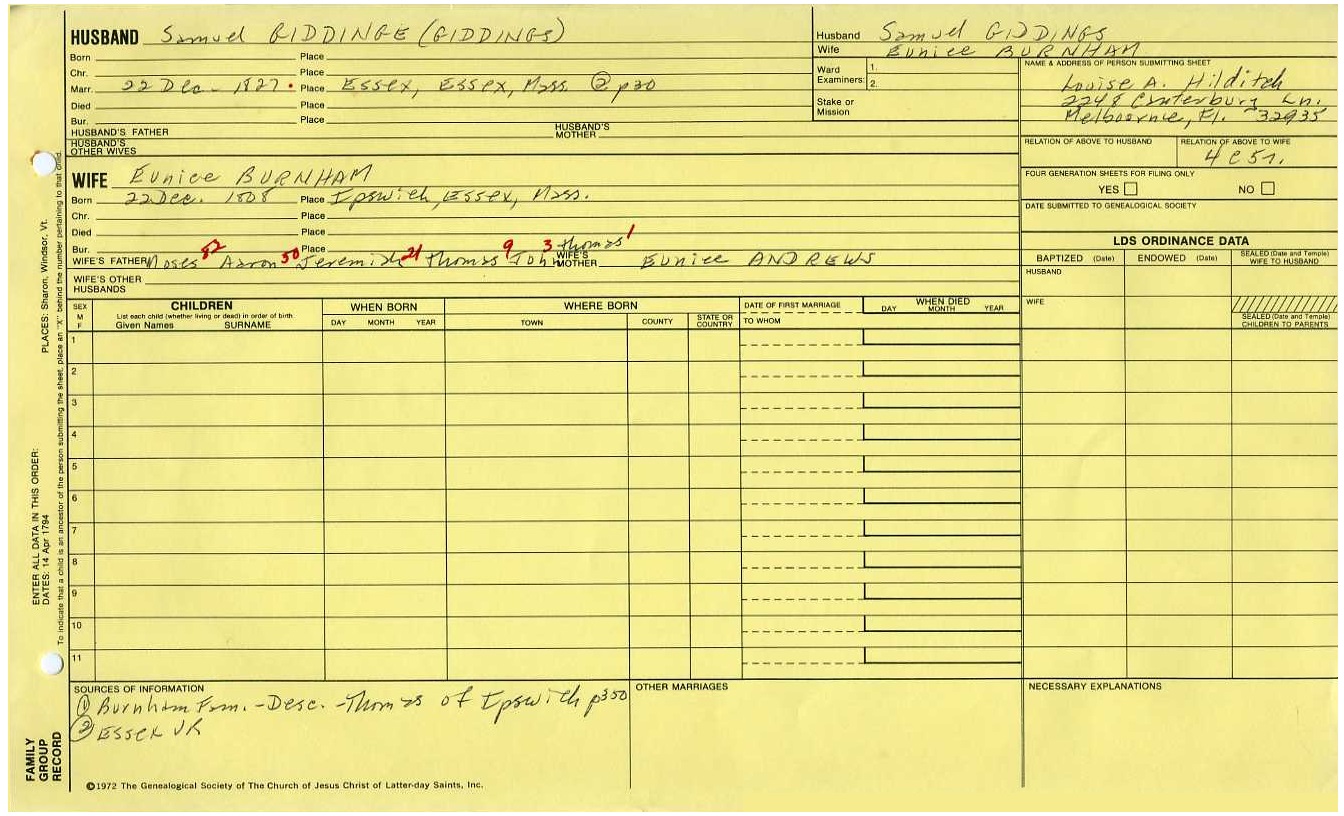 HUSBAND Samuel GIDDINGE (GIDDINGS)
Born Place
Chr. Place
Marr. 22 Dec - 1827 Place Essex, Essex, Mass. ② p30
Died Place
Bur. Place
HUSBAND'S FATHER HUSBAND'S MOTHER
HUSBAND'S OTHER WIVES
WIFE Eunice BURNHAM
Born 22 Dec. 1808 Place Ipswich, Essex, Mass.
Chr. Place
Died Place
Bur. Place
WIFE'S FATHER Moses 82 Aaron 50 Jeremiah 21 Thomas 9 John 3 Thomas 1 WIFE'S MOTHER Eunice ANDREWS
WIFE'S OTHER HUSBANDS
Husband Samuel GIDDINGS
Wife Eunice BURNHAM
Ward Examiners: 1. 2.
Stake or Mission
NAME & ADDRESS OF PERSON SUBMITTING SHEET
Louise A. Hilditch
2248 Canterbury Ln.
Melbourne, Fl. 32935
RELATION OF ABOVE TO HUSBAND RELATION OF ABOVE TO WIFE
4C5r.
FOUR GENERATION SHEETS FOR FILING ONLY
YES NO
DATE SUBMITTED TO GENEALOGICAL SOCIETY
LDS ORDINANCE DATA
BAPTIZED (Date) ENDOWED (Date) SEALED (Date and Temple) WIFE TO HUSBAND
HUSBAND
WIFE
SEALED (Date and Temple) CHILDREN TO PARENTS
SEX M F CHILDREN WHEN BORN WHERE BORN DATE OF FIRST MARRIAGE WHEN DIED
List each child (whether living or dead) in order of birth
Given Names SURNAME DAY MONTH YEAR TOWN COUNTY STATE OR COUNTRY TO WHOM DAY MONTH YEAR
1
2
3
4
5
6
7
8
9
10
11
SOURCES OF INFORMATION
① Burnham Fam. - Desc. - Thomas of Ipswich p350
② Essex VR
OTHER MARRIAGES
NECESSARY EXPLANATIONS
©1972 The Genealogical Society of The Church of Jesus Christ of Latter-day Saints, Inc.
FAMILY GROUP RECORD
ENTER ALL DATA IN THIS ORDER:
DATES: 14 Apr 1794 PLACES: Sharon, Windsor, Vt.
To indicate that a child is an ancestor of the person submitting the sheet, place an "X" behind the number pertaining to that child.